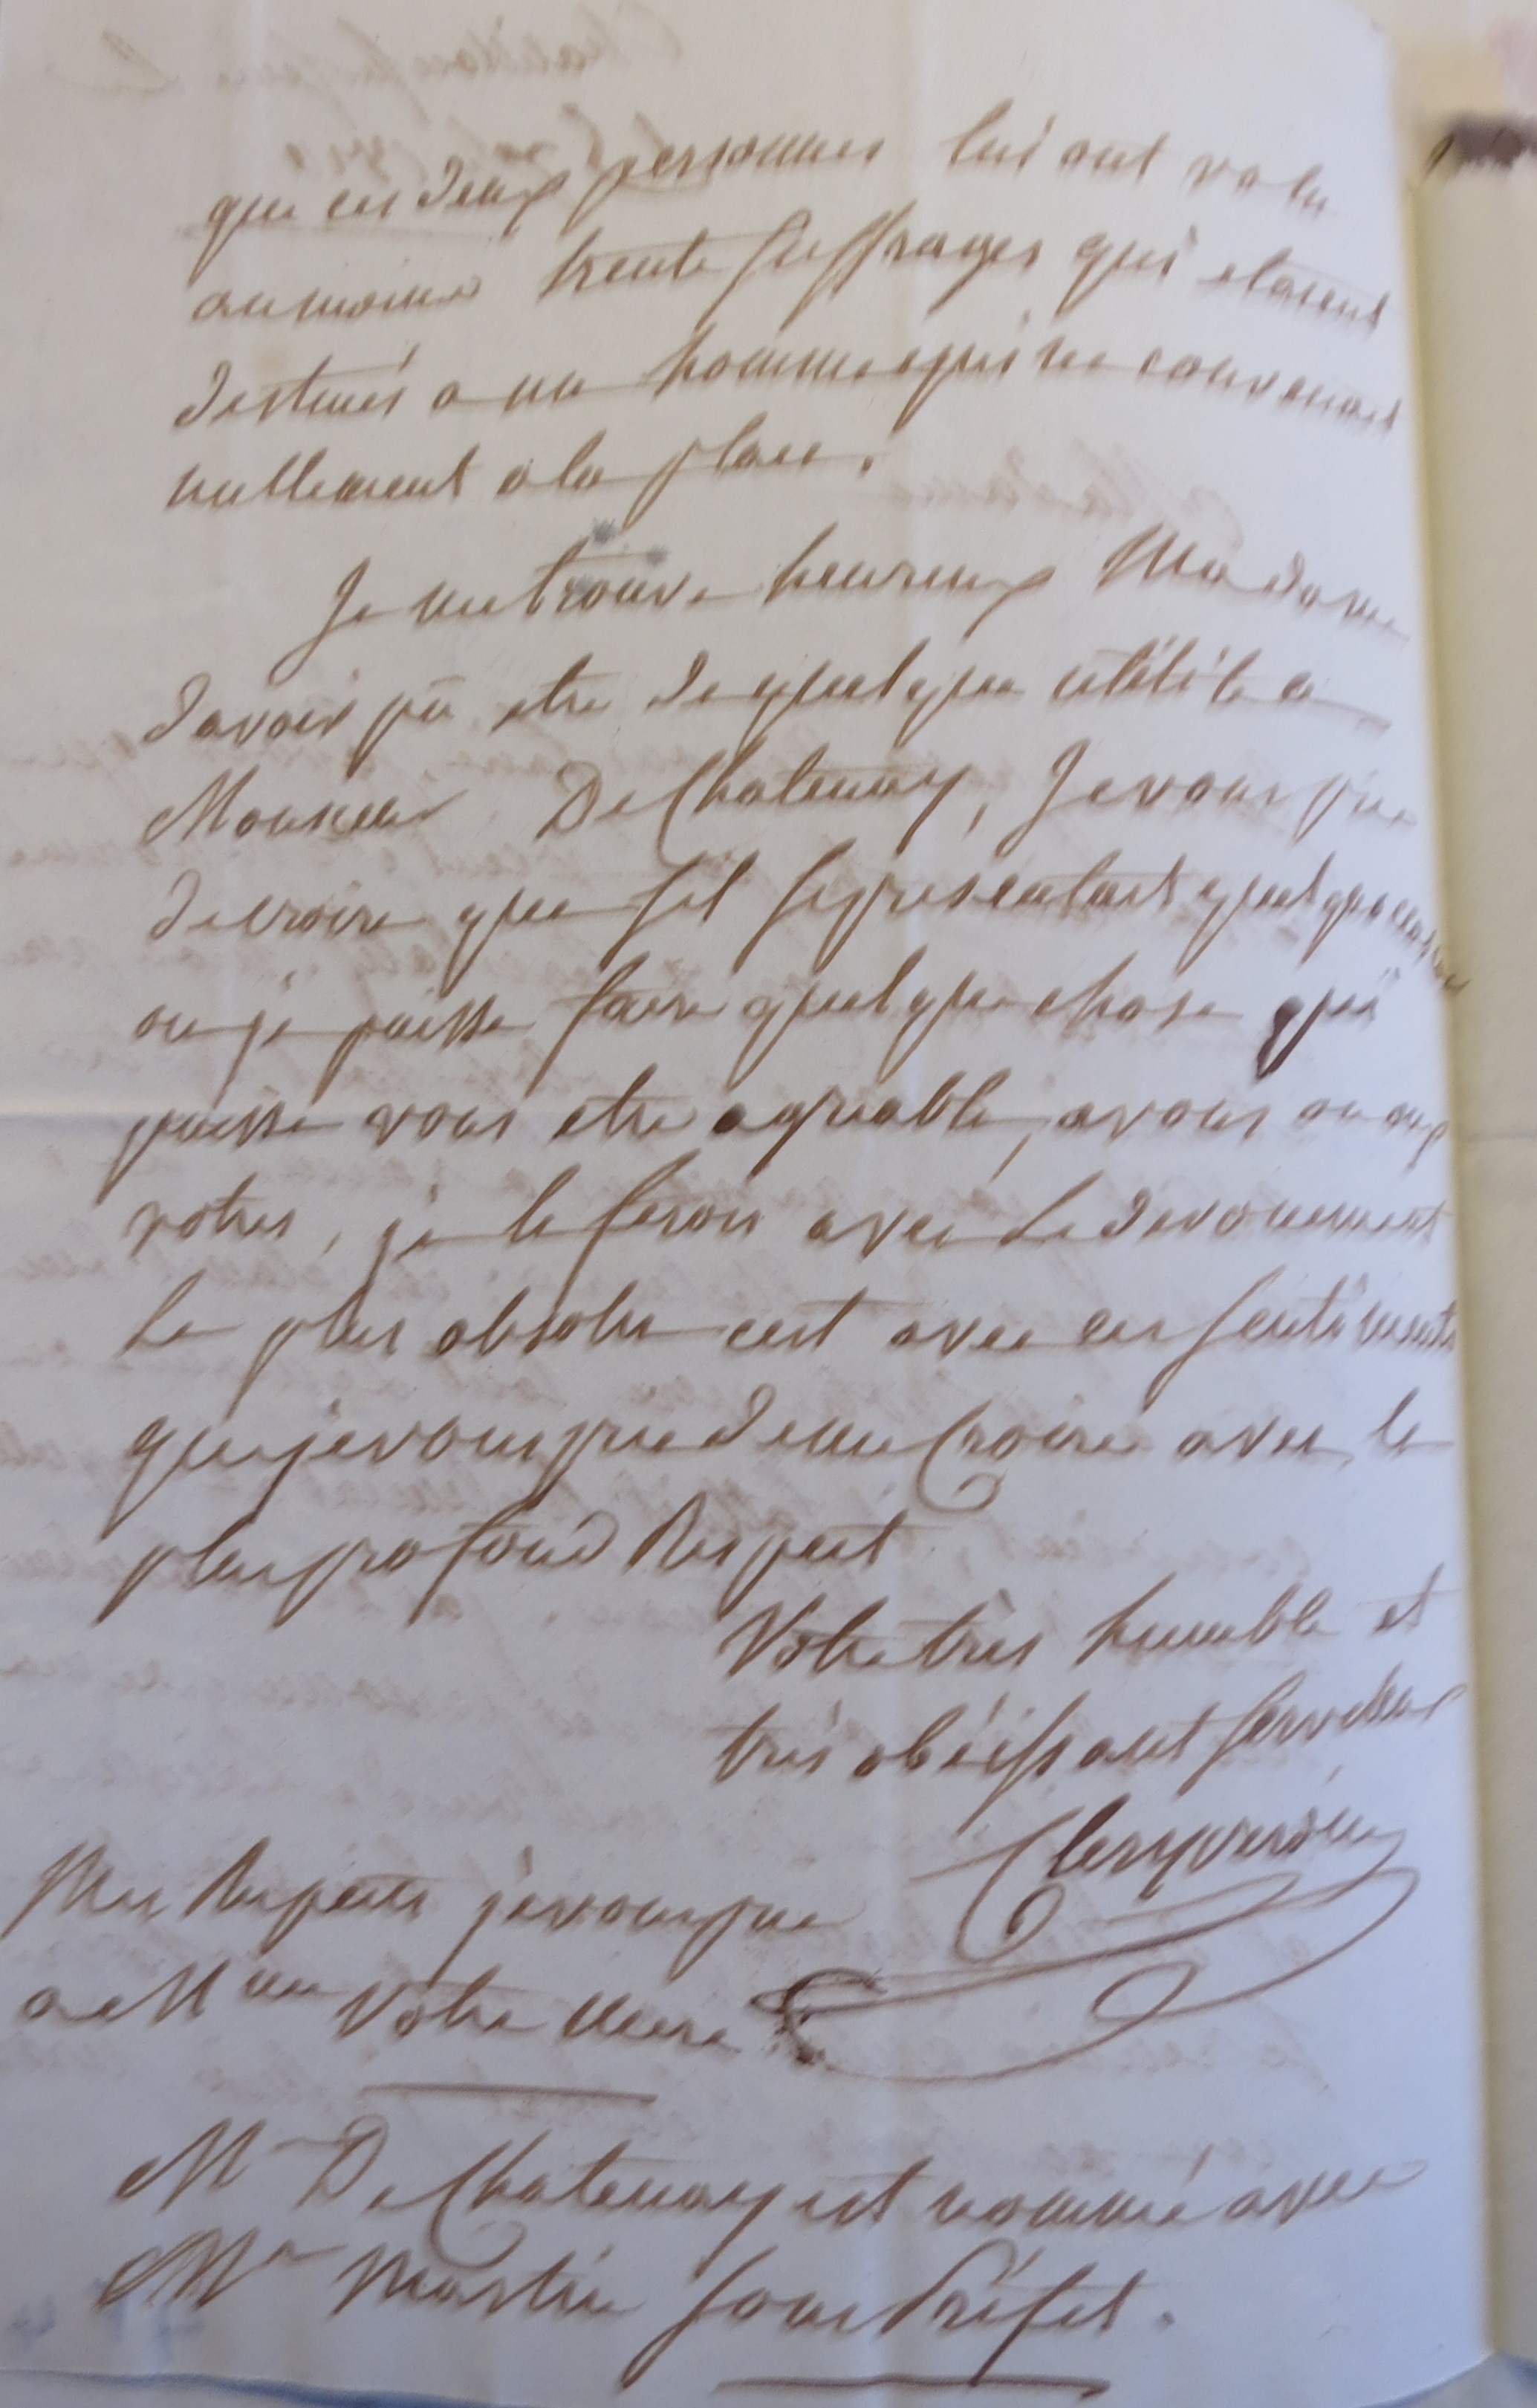 que ces deux personnes lui ont valu
au moins trente suffrages qui etaient
destinés a un homme qui ne convenait
nullement a la place.
Je me trouve heureux Madame
davoir pu etre de quelque utilité a
Monsieur De Chatenay, Je vous prie
de croire que sil se présentait quelque occasion
ou je puisse faire quelque chose qui
puisse vous etre agréable, a vous ou aux
votres, je le ferois avec le devouement
le plus absolu cest avec ces sentiments
que je vous prie de me Croire avec le
plus profond Respect
Votre très humble et
très obéissant serviteur
Mes Respects je vous prie
a Mme Votre mere
Mr De Chatenay est nommé avec
Mr Martin sous Préfet.